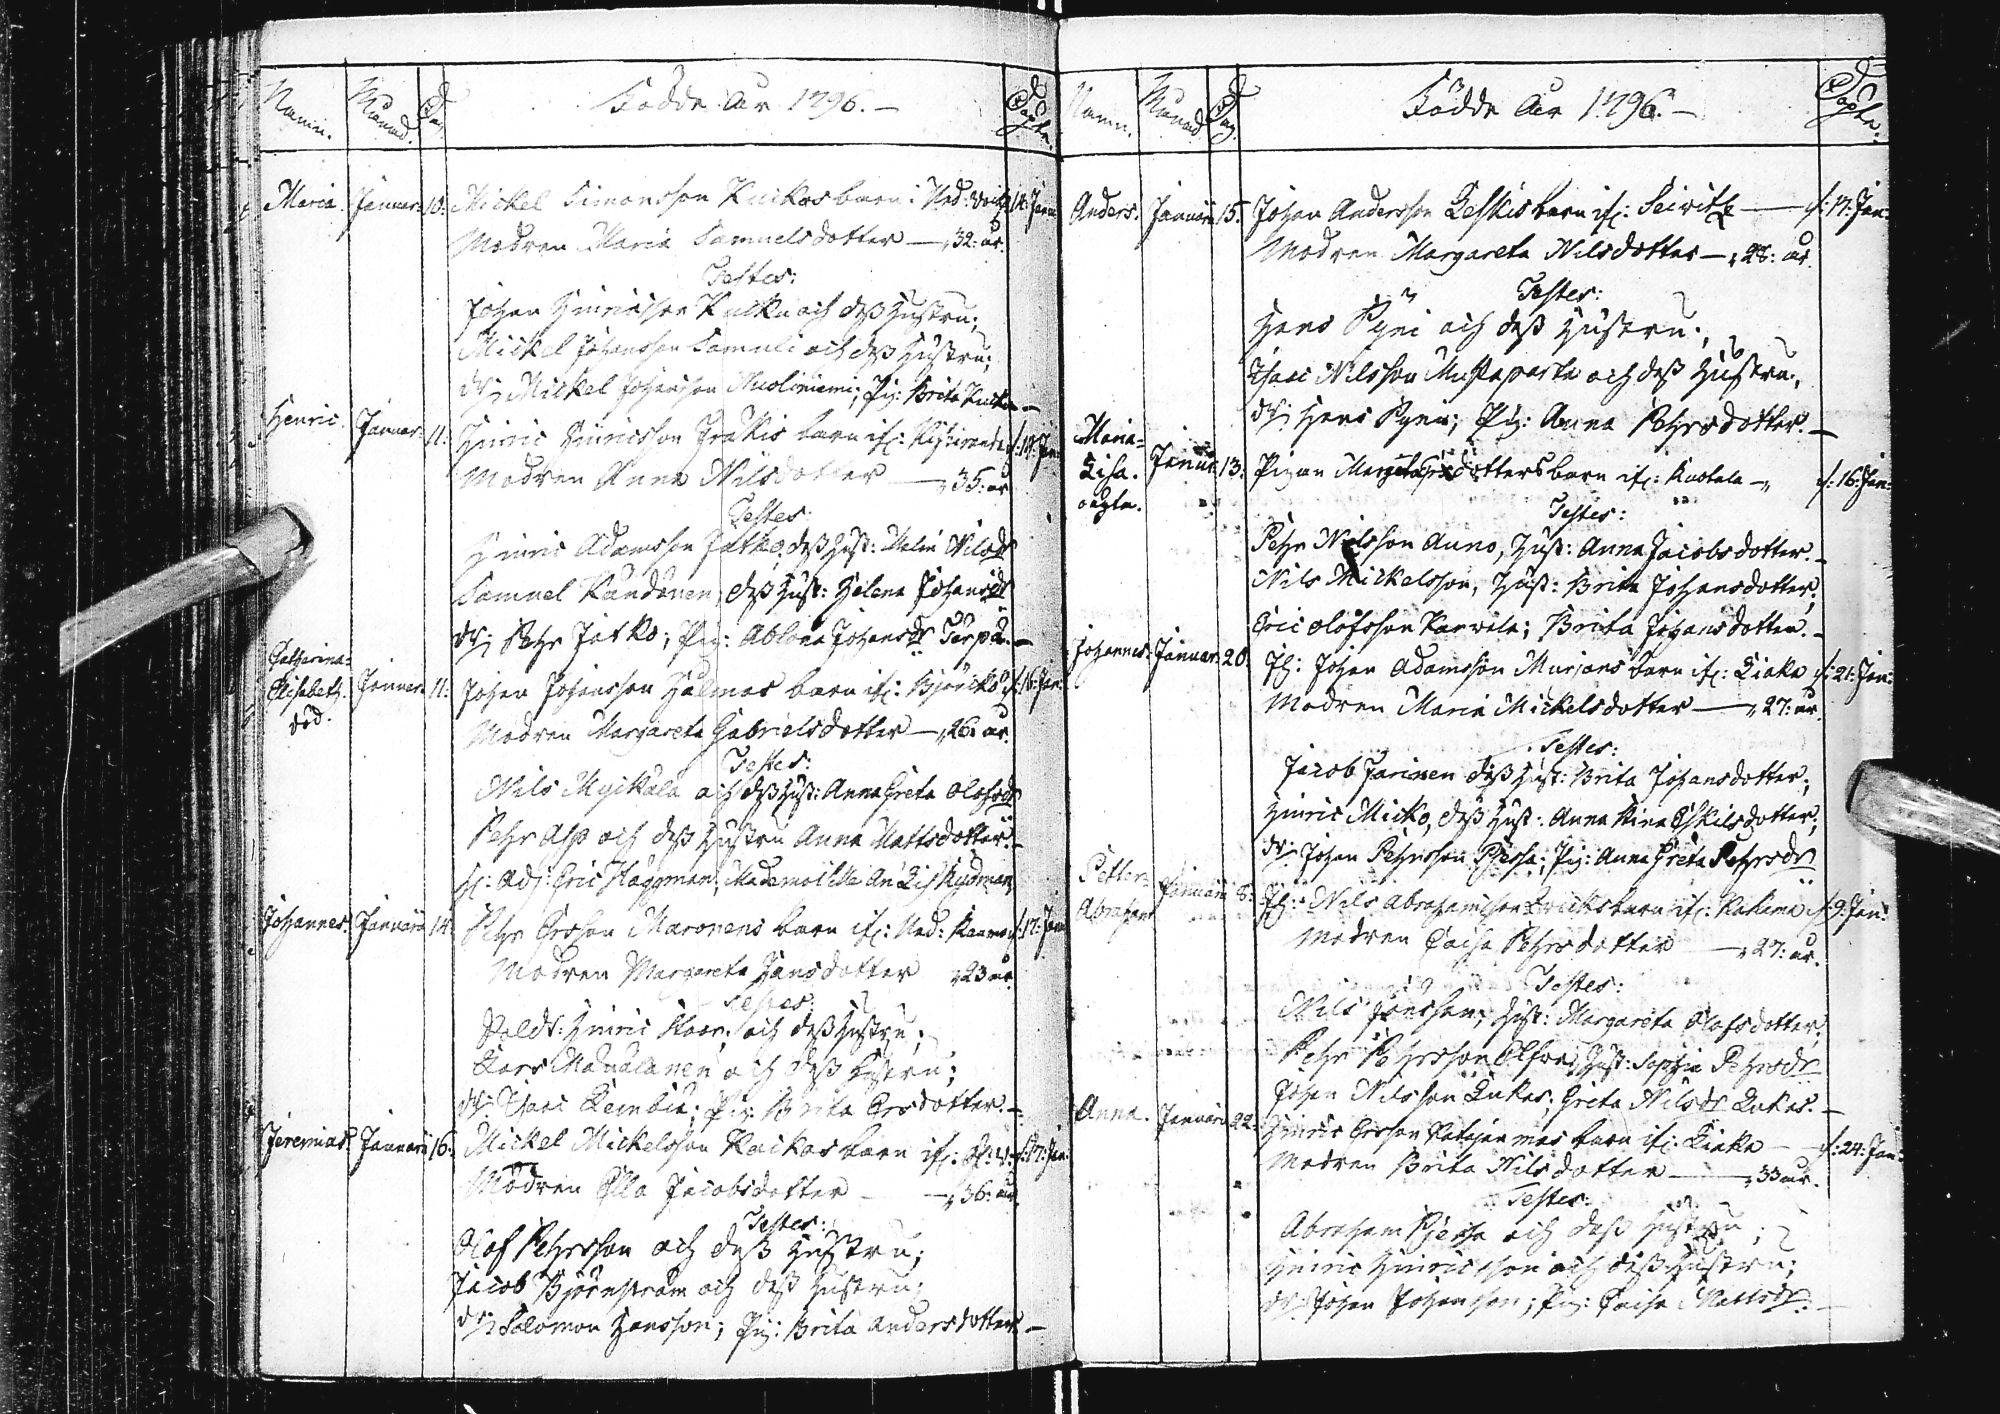 Namn.
Månad.
Dag.
Födde År 1796.—
Döpte.
Maria. Januar: 10: Mickel Simonsson Kuckos barn i Ned: 14: Janu:
Modren Maria Samuels dotter — 32: år.
Testes:
Johan Hinricsson Kulku och dess Hustru;
Mickel Johansson Samuli och dess Hustru;
dr: Mickel Johansson Nuoliniemi; Pig: Brita
Henric. Januar. 11: Hinric Hinricsson barn if: d: 14: Jan:
Modren Anna Nilsdotter — 35: år
Testes:
Hinric Adamsson Jatko, dess Hust: Malin Nilsdr
Samuel dess Hust: Helena Johansdr
dr: Pehr Jatko; Pig: Johansdr —
Catharina-
Elisabeth.
död.
Januar: 11: Johan Johansson barn if: Björckö d: 16: Jan:
Modren Margareta Gabrielsdotter — 26: år.
Testes:
Nils Myikälä och dess Hust: Anna Greta Olofsdr
Pehr Asp och dess Hustru Anna Mattsdotter.—
Adj: Eric Häggman, Mademoiselle An: Lis:
Johannes. Januarii 14: Pehr Ersson Maronens barn if: Ned: d: 17: Jan
Modren Margareta Hansdotter 23 år
Testes:
Soldt: Hinric och dess Hustru;
Lars och dess Hustru;
dr: Isac Pig: Brita Ersdotter.—
Jeremias. Januarii 16: Mickel Mickelsson barn if: d: 17: Jan:
Modren Ella Jacobsdotter — 36: år
Testes:
Olof Pehrsson och dess Hustru;
Jacob Björnström och dess Hustru;
dr: Salomon Hansson; Pig: Brita Andersdotter —
Namn.
Månad
Dag.
Födde År 1796.—
Döpte.
Anders. Januarii 15. Johan Andersson barn if: — d: 17: Jan:
Modren Margareta Nilsdotter — 28: år.
Testes:
Hans Pyni och dess Hustru;
Isaac Nilsson Mustaparta och dess Hustru;
dr: Hans Pyni; Pig: Anna Pehrsdotter.—
Maria-
Lisa.
oägta.
Januar: 13: Pigan dotters barn if: — d: 16: Jan:
Testes:
Pehr Nilsson Auno, Hust: Anna Jacobsdotter.—
Nils Mickelsson, Hust: Brita Johansdotter;
Eric Olofsson Karvela; Brita Johansdotter.—
Johannes: Januar: 20. Johan Adamsson barn if: d: 21: Jan:
Modren Maria Mickelsdotter — 27: år
Testes:
Jacob Jarinen dess Hust: Brita Johansdotter;
Hinric Micko, dess Hust: Anna Stina Eskilsdotter;
dr: Johan Pehrsson Pjessa; Pig: Anna Greta Pehrsdr
Petter-
Abraham
Januarii 8: Nils Abrahamsson barn if: d: 9: Jan:
Modren Caisa Pehrsdotter — 27: år.
Testes:
Nils Jönsson, Hust: Margareta Olofsdotter;
Pehr Pehrsson Hust: Sophia Pehrsdr
Johan Nilsson Lukas; Greta Nilsdr Lukas.—
Anna. Januarii 22: Hinric Ersson barn if: — d: 24: Jan:
Modren Brita Nilsdotter — 33 år.
Testes:
Abraham Pjessa och dess Hustru;
Hinric Hinricsson och dess Hustru;
dr: Johan Johansson; Pig: Caisa Mattsdr.—